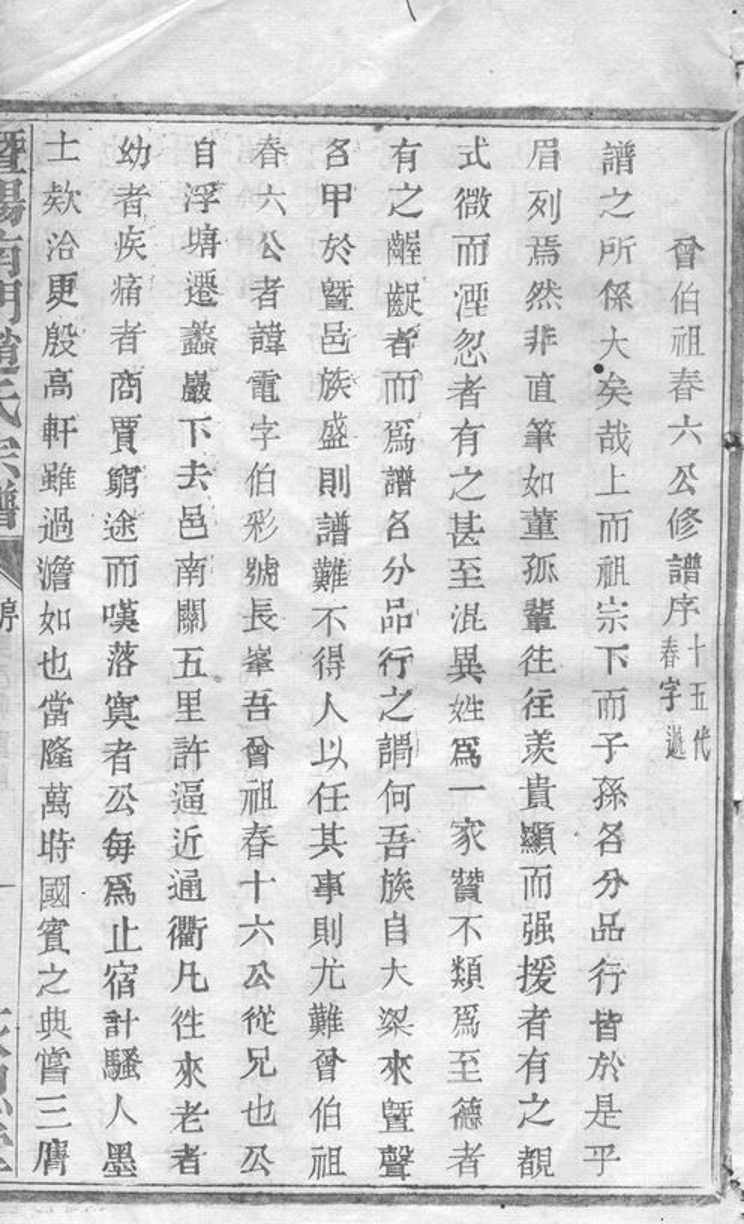 曾伯祖春六公修譜序十五代春字遜
譜之所係大矣哉上而祖宗下而子孫名分品行皆於是乎
眉列焉然非直筆如董孤輩往往羡貴顯而强援者有之覩
式微而湮忽者有之甚至混異姓爲一家贊不類爲至德者
有之齷齪者而爲譜名分品行之謂何吾族自大梁來曁聲
名甲於曁邑族盛則譜難不得人以任其事則尤難曾伯祖
春六公者諱電字伯彩號長峯吾曾祖春十六公從兄也公
自浮塘遷蠡巖下去邑南關五里許逼近通衢凡徃來老者
幼者疾痛者商賈窮途而嘆落寞者公每爲止宿計騷人墨
士欸洽更殷高軒雖過澹如也當隆萬時國賓之典嘗三膺
曁陽南門趙氏宗譜
序
一